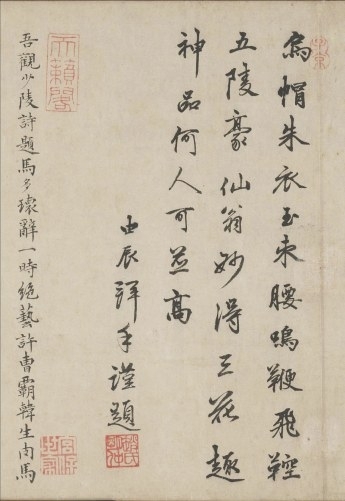 烏帽朱衣玉束腰鳴鞭飛鞚
五陵豪仙翁妙得三花趣
神品何人可並高
由辰拜手謹題
天籟閣
吾觀少陵詩題馬多瓌辭一時絕藝許曹霸韓生肉馬